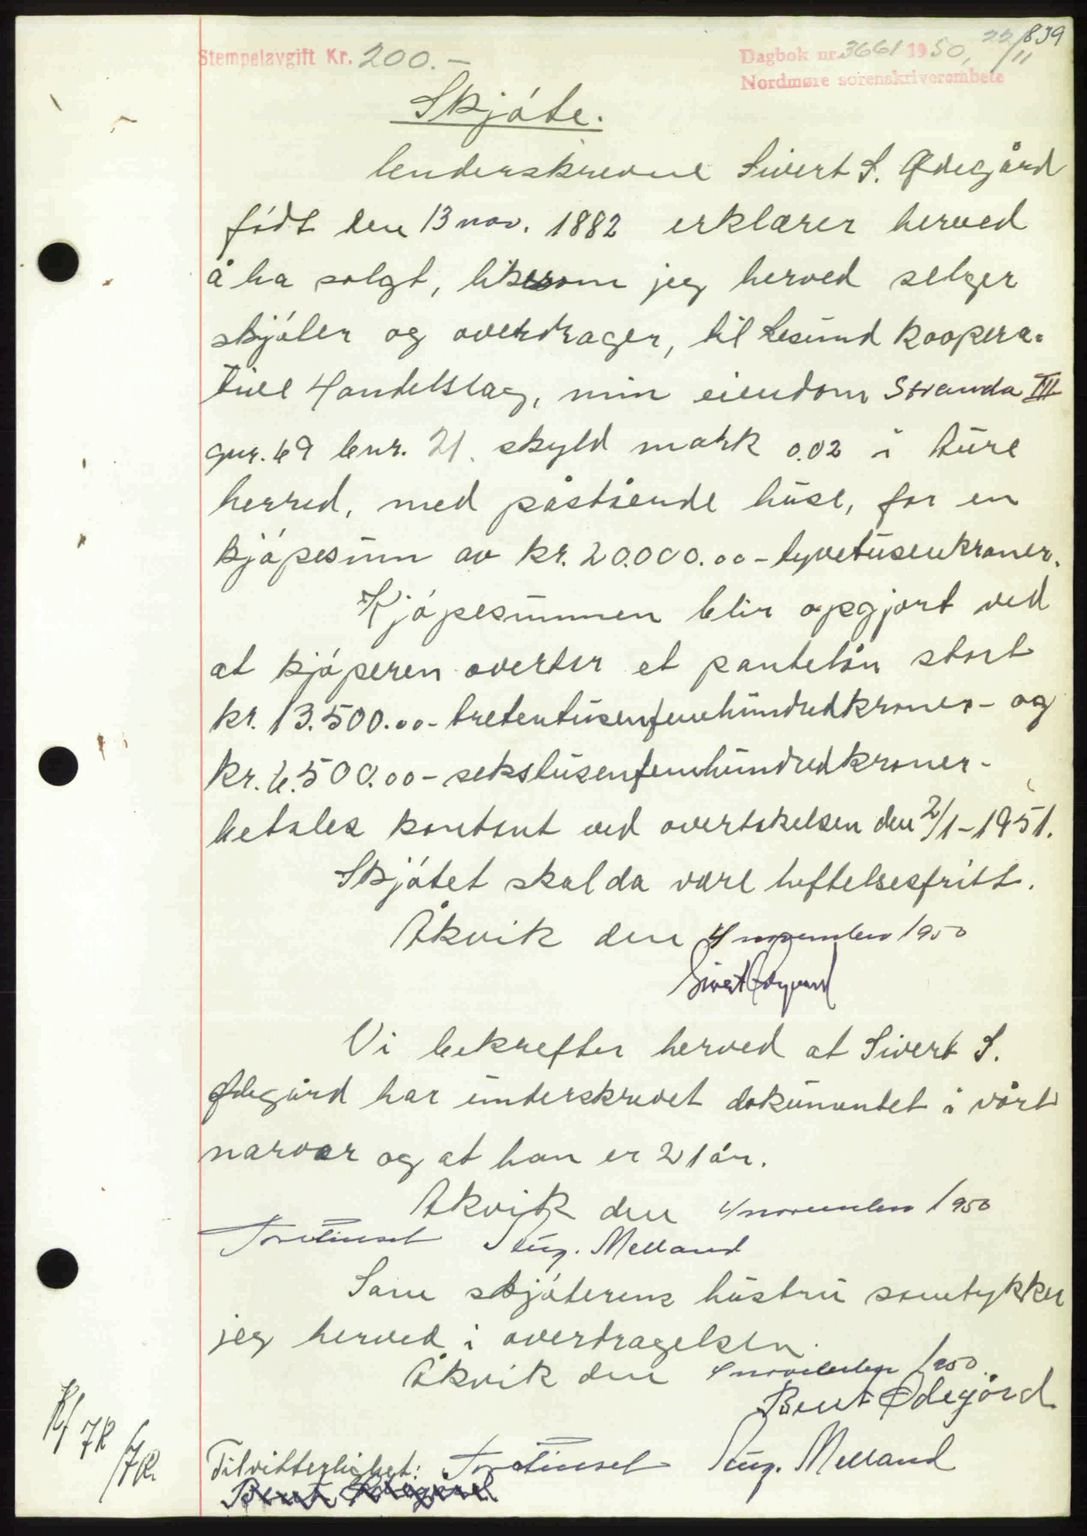 839
Stempelavgift Kr. 200.-
Dagbok nr. 3661 1950, 22/11
Nordmøre sorenskriverembete
Skjøte.
Underskrevne Sivert S. Ødegård
født den 13 nov. 1882 erklærer herved
å ha solgt, likesom jeg herved selger
skjøter og overdrager, til Lesund koopera-
tive Handelslag, min eiendom Stranda III
gnr. 69 bnr. 21. skyld mark 0.02 i Aure
herred, med påstående huse, for en
kjøpesum av kr. 20.000.00 - tyvetusenkroner.
Kjøpesummen blir opgjort ved
at kjøperen overtar et pantelån stort
kr. 13.500.00 - trettentusenfemhundredkroner - og
kr. 6.500.00 - sekstusenfemhundredkroner -
betales kontant ved overtakelsen den 2/1 - 1951.
Skjøtet skal da være heftelsesfritt.
Åkvik den 4 november 1950
Sivert Ødegård
Vi bekrefter herved at Sivert S.
Ødegård har underskrevet dokumentet i vårt
nærvær og at han er 21 år.
Åkvik den 4 november 1950
Melland
Som skjøterens hustru samtykker
jeg herved i overdragelsen.
Åkvik den 4 november 1950.
Berit Ødegård
Til vitterlighet: Melland